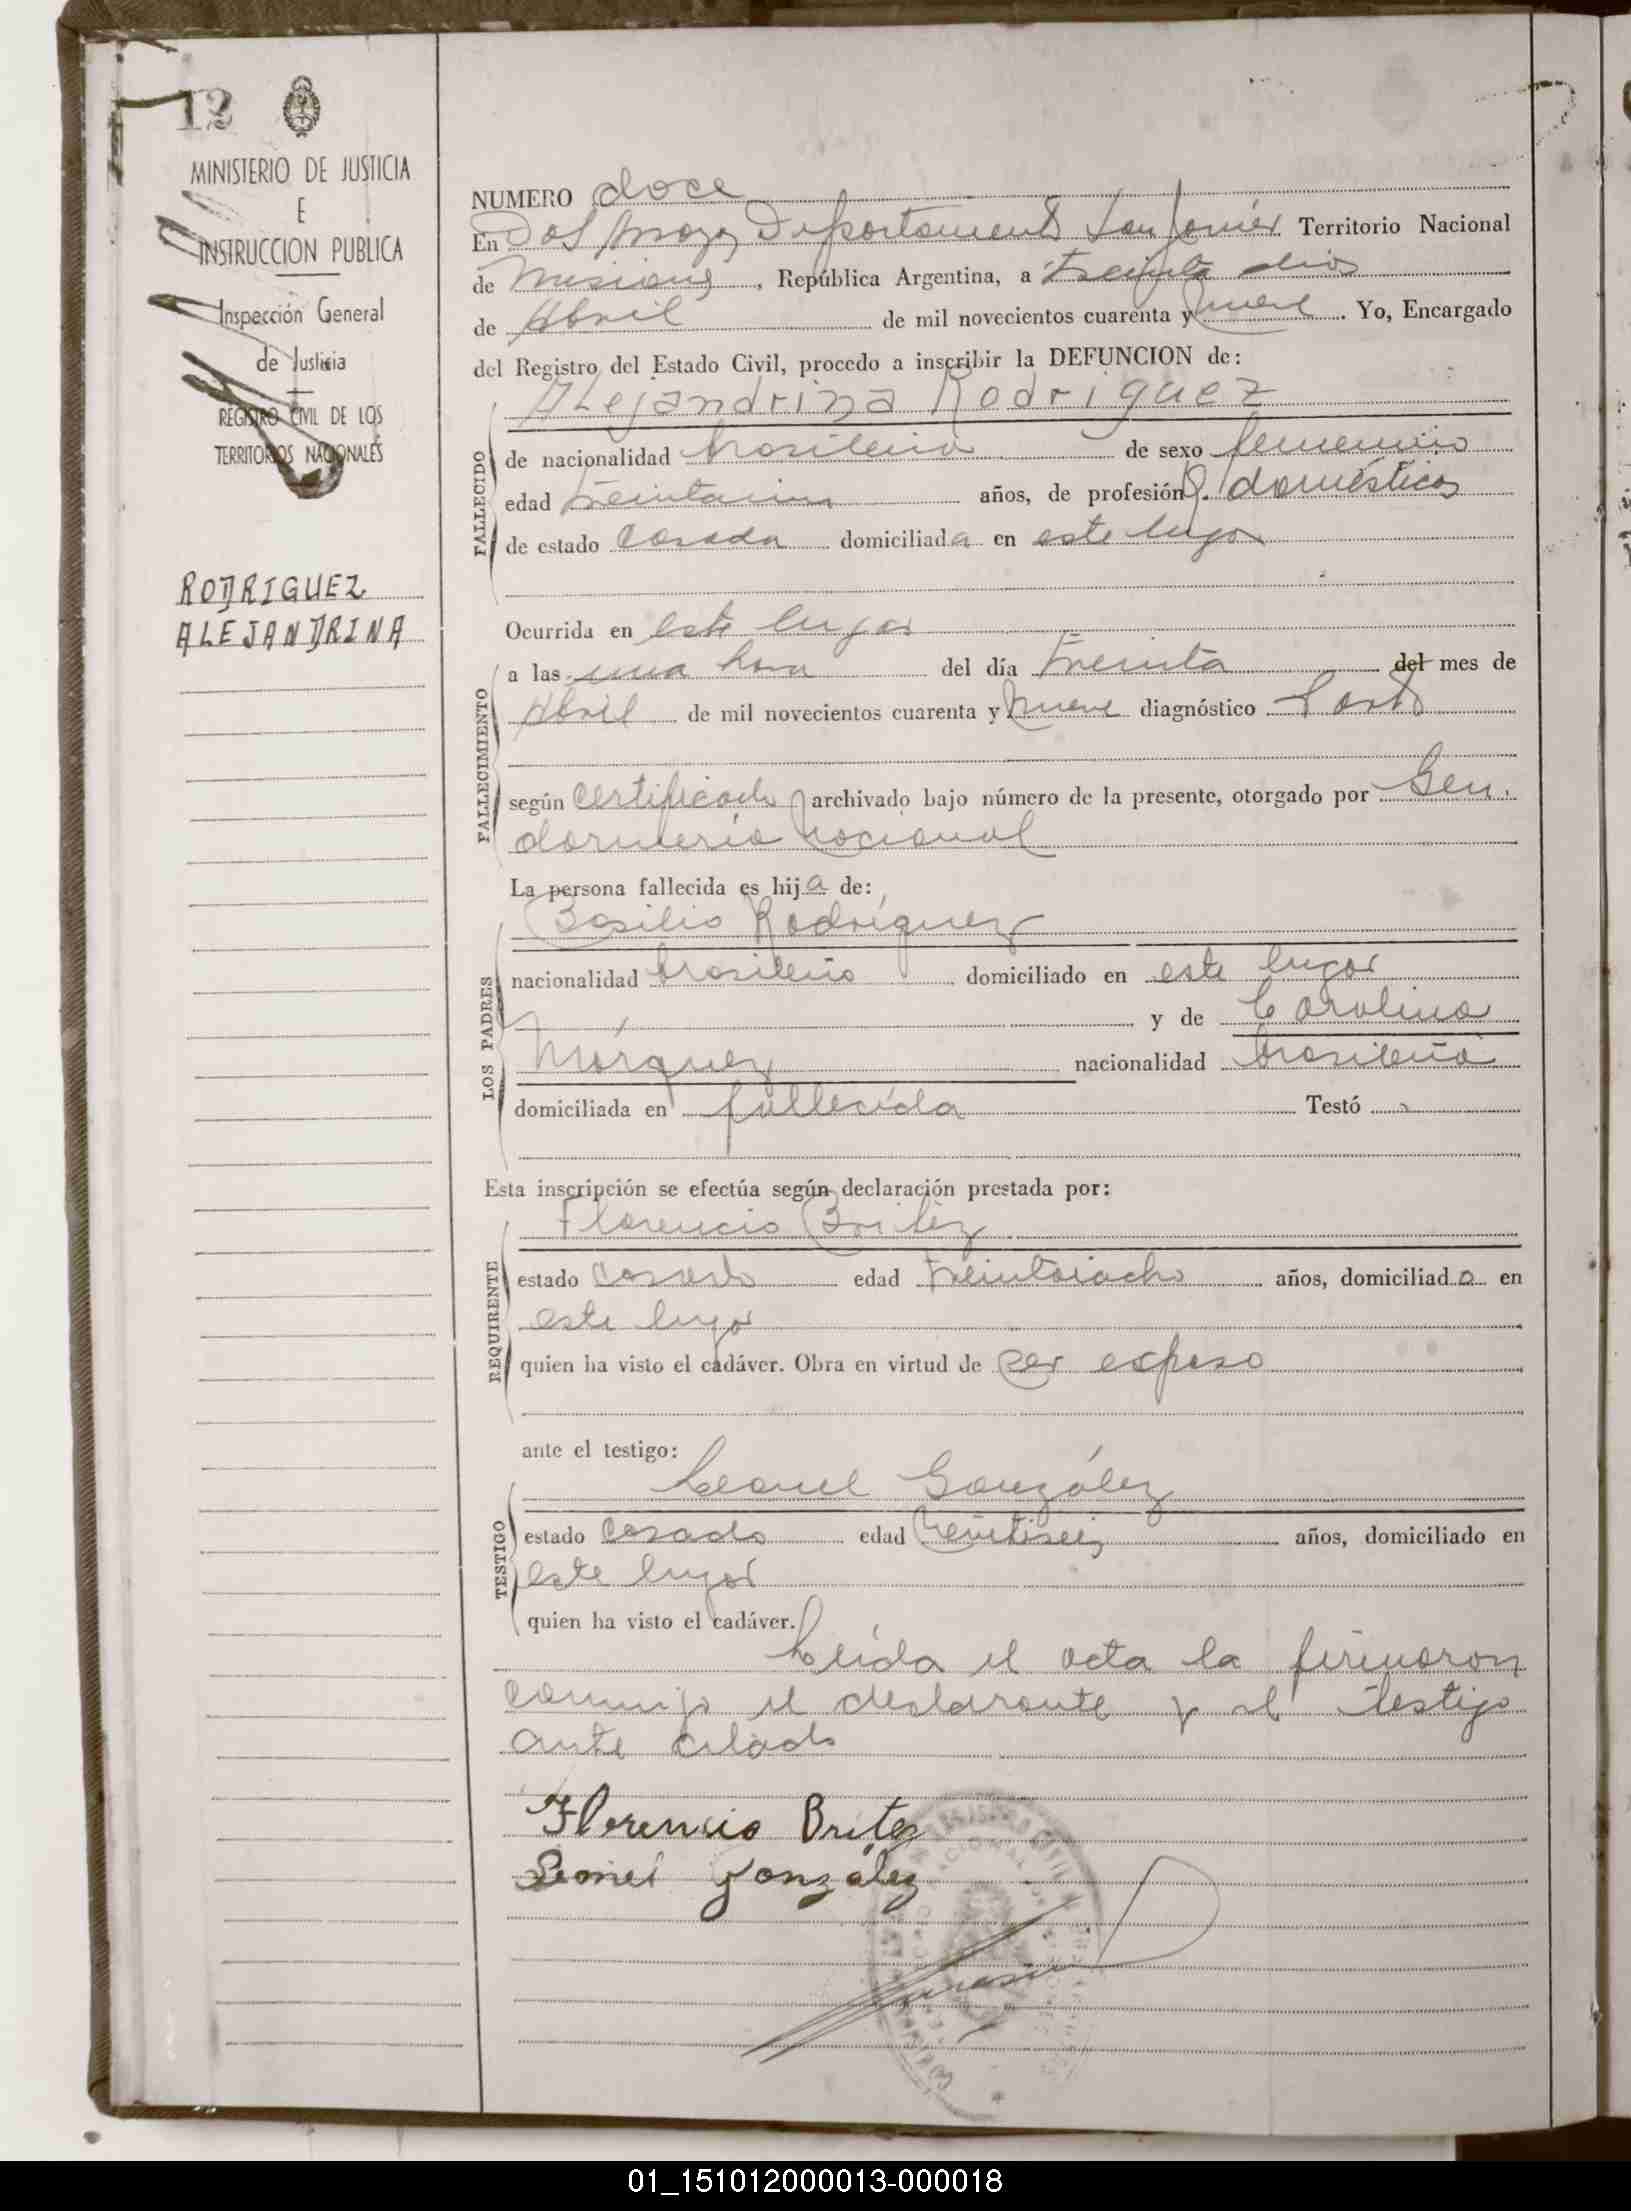 12
MINISTERIO DE JUSTICIA
E
INSTRUCCION PUBLICA
Inspección General
de Justicia
REGISTRO CIVIL DE LOS
TERRITORIOS NACIONALES
RODRIGUEZ
ALEJANDRINA
NUMERO doce
En Dos Departamento San Javier Territorio Nacional
de Misiones, República Argentina, a treinta dias
de Abril de mil novecientos cuarenta y nueve. Yo, Encargado
del Registro del Estado Civil, procedo a inscribir la DEFUNCION de:
Alejandrina Rodriguez
FALLECIDO
de nacionalidad brasileña de sexo femenino
edad años, de profesión Q. domésticos
de estado casada domiciliada en este lugar
Ocurrida en este lugar
FALLECIMIENTO
a las una hora del día treinta del mes de
Abril de mil novecientos cuarenta y nueve diagnóstico Parto
según certificado archivado bajo número de la presente, otorgado por Gen
darmería Nacional
La persona fallecida es hija de:
LOS PADRES
Basilio Rodríguez
nacionalidad brasileño domiciliado en este lugar
y de Carolina
Márquez nacionalidad brasileña
domiciliada en fallecida Testó
Esta inscripción se efectúa según declaración prestada por:
REQUIRENTE
Florencio Britez
estado casado edad treintaiocho años, domiciliado en
este lugar
quien ha visto el cadáver. Obra en virtud de ser esposo
ante el testigo:
TESTIGO
Leonel González
estado casado edad veintiseis años, domiciliado en
este lugar
quien ha visto el cadáver.
Leída el acta la firmaron
conmigo el declarante y el testigo
ante citado
Florencio Britez
González
01_151012000013-000018